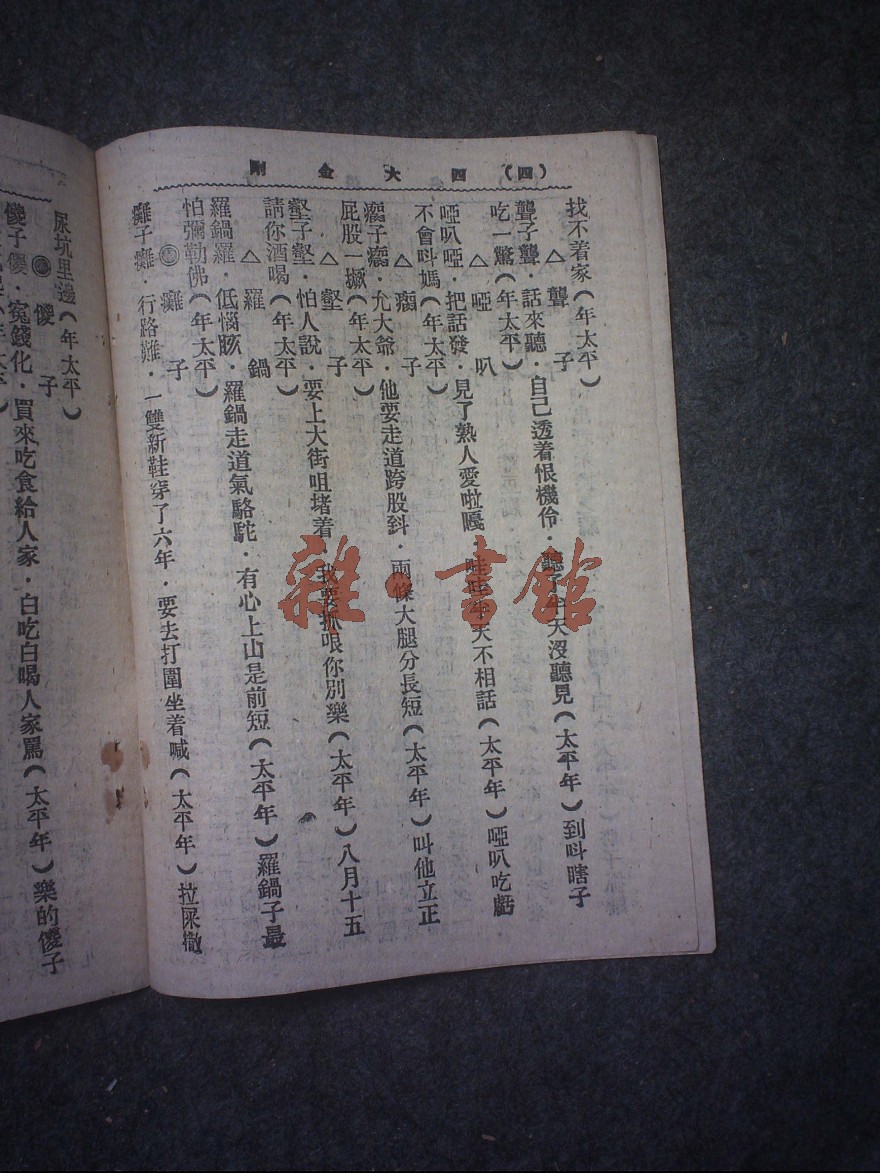 (四) 四大金剛
找不着家(年太平)
△聾子
聾子聾·話來聽·自己透着恨機伶·聽了半天沒聽見(太平年)到呌瞎子
吃一驚(年太平)
△啞叭
啞叭啞·把話發·見了熟人愛啦嘎·哇哇半天不相話(太平年)啞叭吃虧
不會呌媽(年太平)
△瘸子
瘸子瘸·尤大爺·他要走道跨股斜·兩條大腿分長短(太平年)叫他立正
屁股一撅(年太平)
△壑子
壑子壑·怕人說·要上大街咀堵着·我要抓哏你別樂(太平年)八月十五
請你酒喝(年太平)
△羅鍋
羅鍋羅·低惱胲·羅鍋走道氣駱駝·有心上山是前短(太平年)羅鍋子最
怕彌勒佛(年太平)
癱子
癱子癱·行路難·一雙新鞋穿了六年·要去打圍坐着喊(太平年)拉屎撤
尿坑里邊(年太平)
傻子
傻子傻·寃錢化·買來吃食給人家·白吃白喝人家罵(太平年)樂的傻子
雜·書館